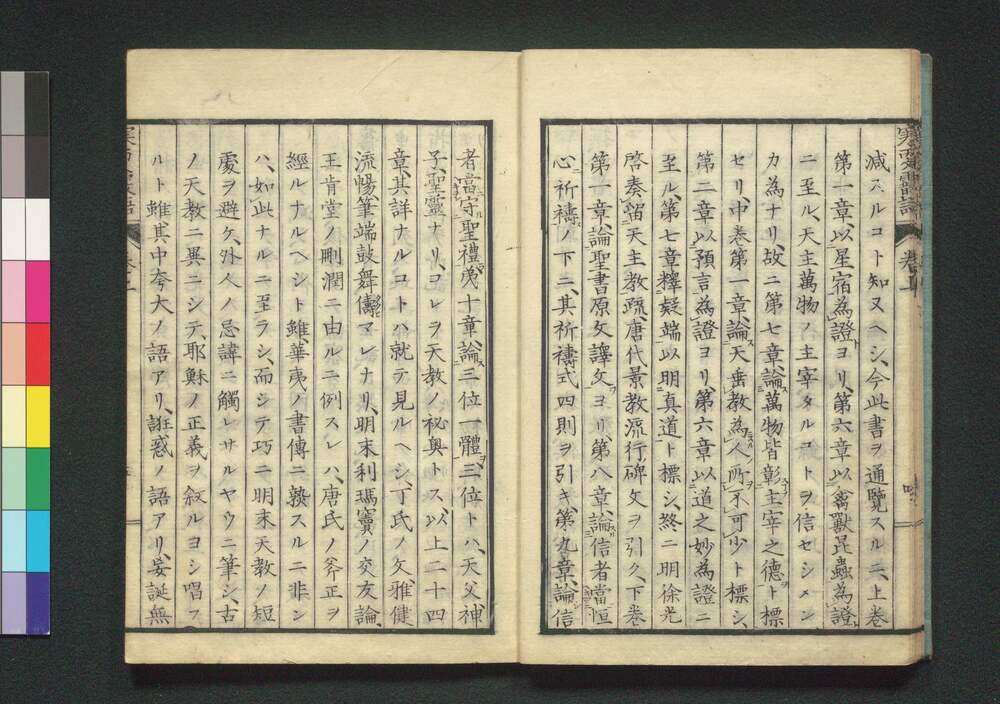 減スルコト知又ヘシ、今此書ヲ通覽スルニ、上卷
第一章、以星宿為證ヨリ、第六章、以禽獸昆蟲為證
ニ至ル、天主萬物ノ主宰タルコトヲ信セシメン
カ為ナリ、故ニ第七章、論萬物皆彰主宰之德ト標
セリ、中卷第一章、論天垂教為人所不可少ト標シ、
第二章、以預言為證ヨリ、第六章、以道之妙為證ニ
至ル、第七章、釋疑端以明真道ト標シ、終ニ明徐光
啓奏留天主教疏、唐代景教流行碑文ヲ引ク、下卷
第一章、論聖書原文譯文ヨリ、第八章、論信者當恒
心祈禱ノ下ニ、其祈禱式四則ヲ引キ、第九章、論信
者當守聖禮、茂十章、論三位一體、三位トハ、天父神
子聖靈ナリ、コレヲ天教ノ秘奧トス、以上二十四
章、其詳ナルコトハ就テ見ルヘシ、丁氏ノ文雅健
流暢筆端鼓舞傳マレナリ、明末利瑪竇ノ交友論、
王肯堂ノ刪潤ニ由ルニ例スレハ、唐氏ノ斧正ヲ
經ルナルヘシト雖、華夷ノ書傳ニ熟スルニ非ン
ハ、如此ナルニ至ラシ、而シテ巧ニ明末天教ノ短
處ヲ避ケ、外人ノ忌諱ニ觸レサルヤウニ筆シ、古
ノ天教ニ異ニシテ、耶穌ノ正義ヲ叙ルヨシ唱フ
ルト雖、其中夸大ノ語アリ、誑惑ノ語アリ、妄誕無